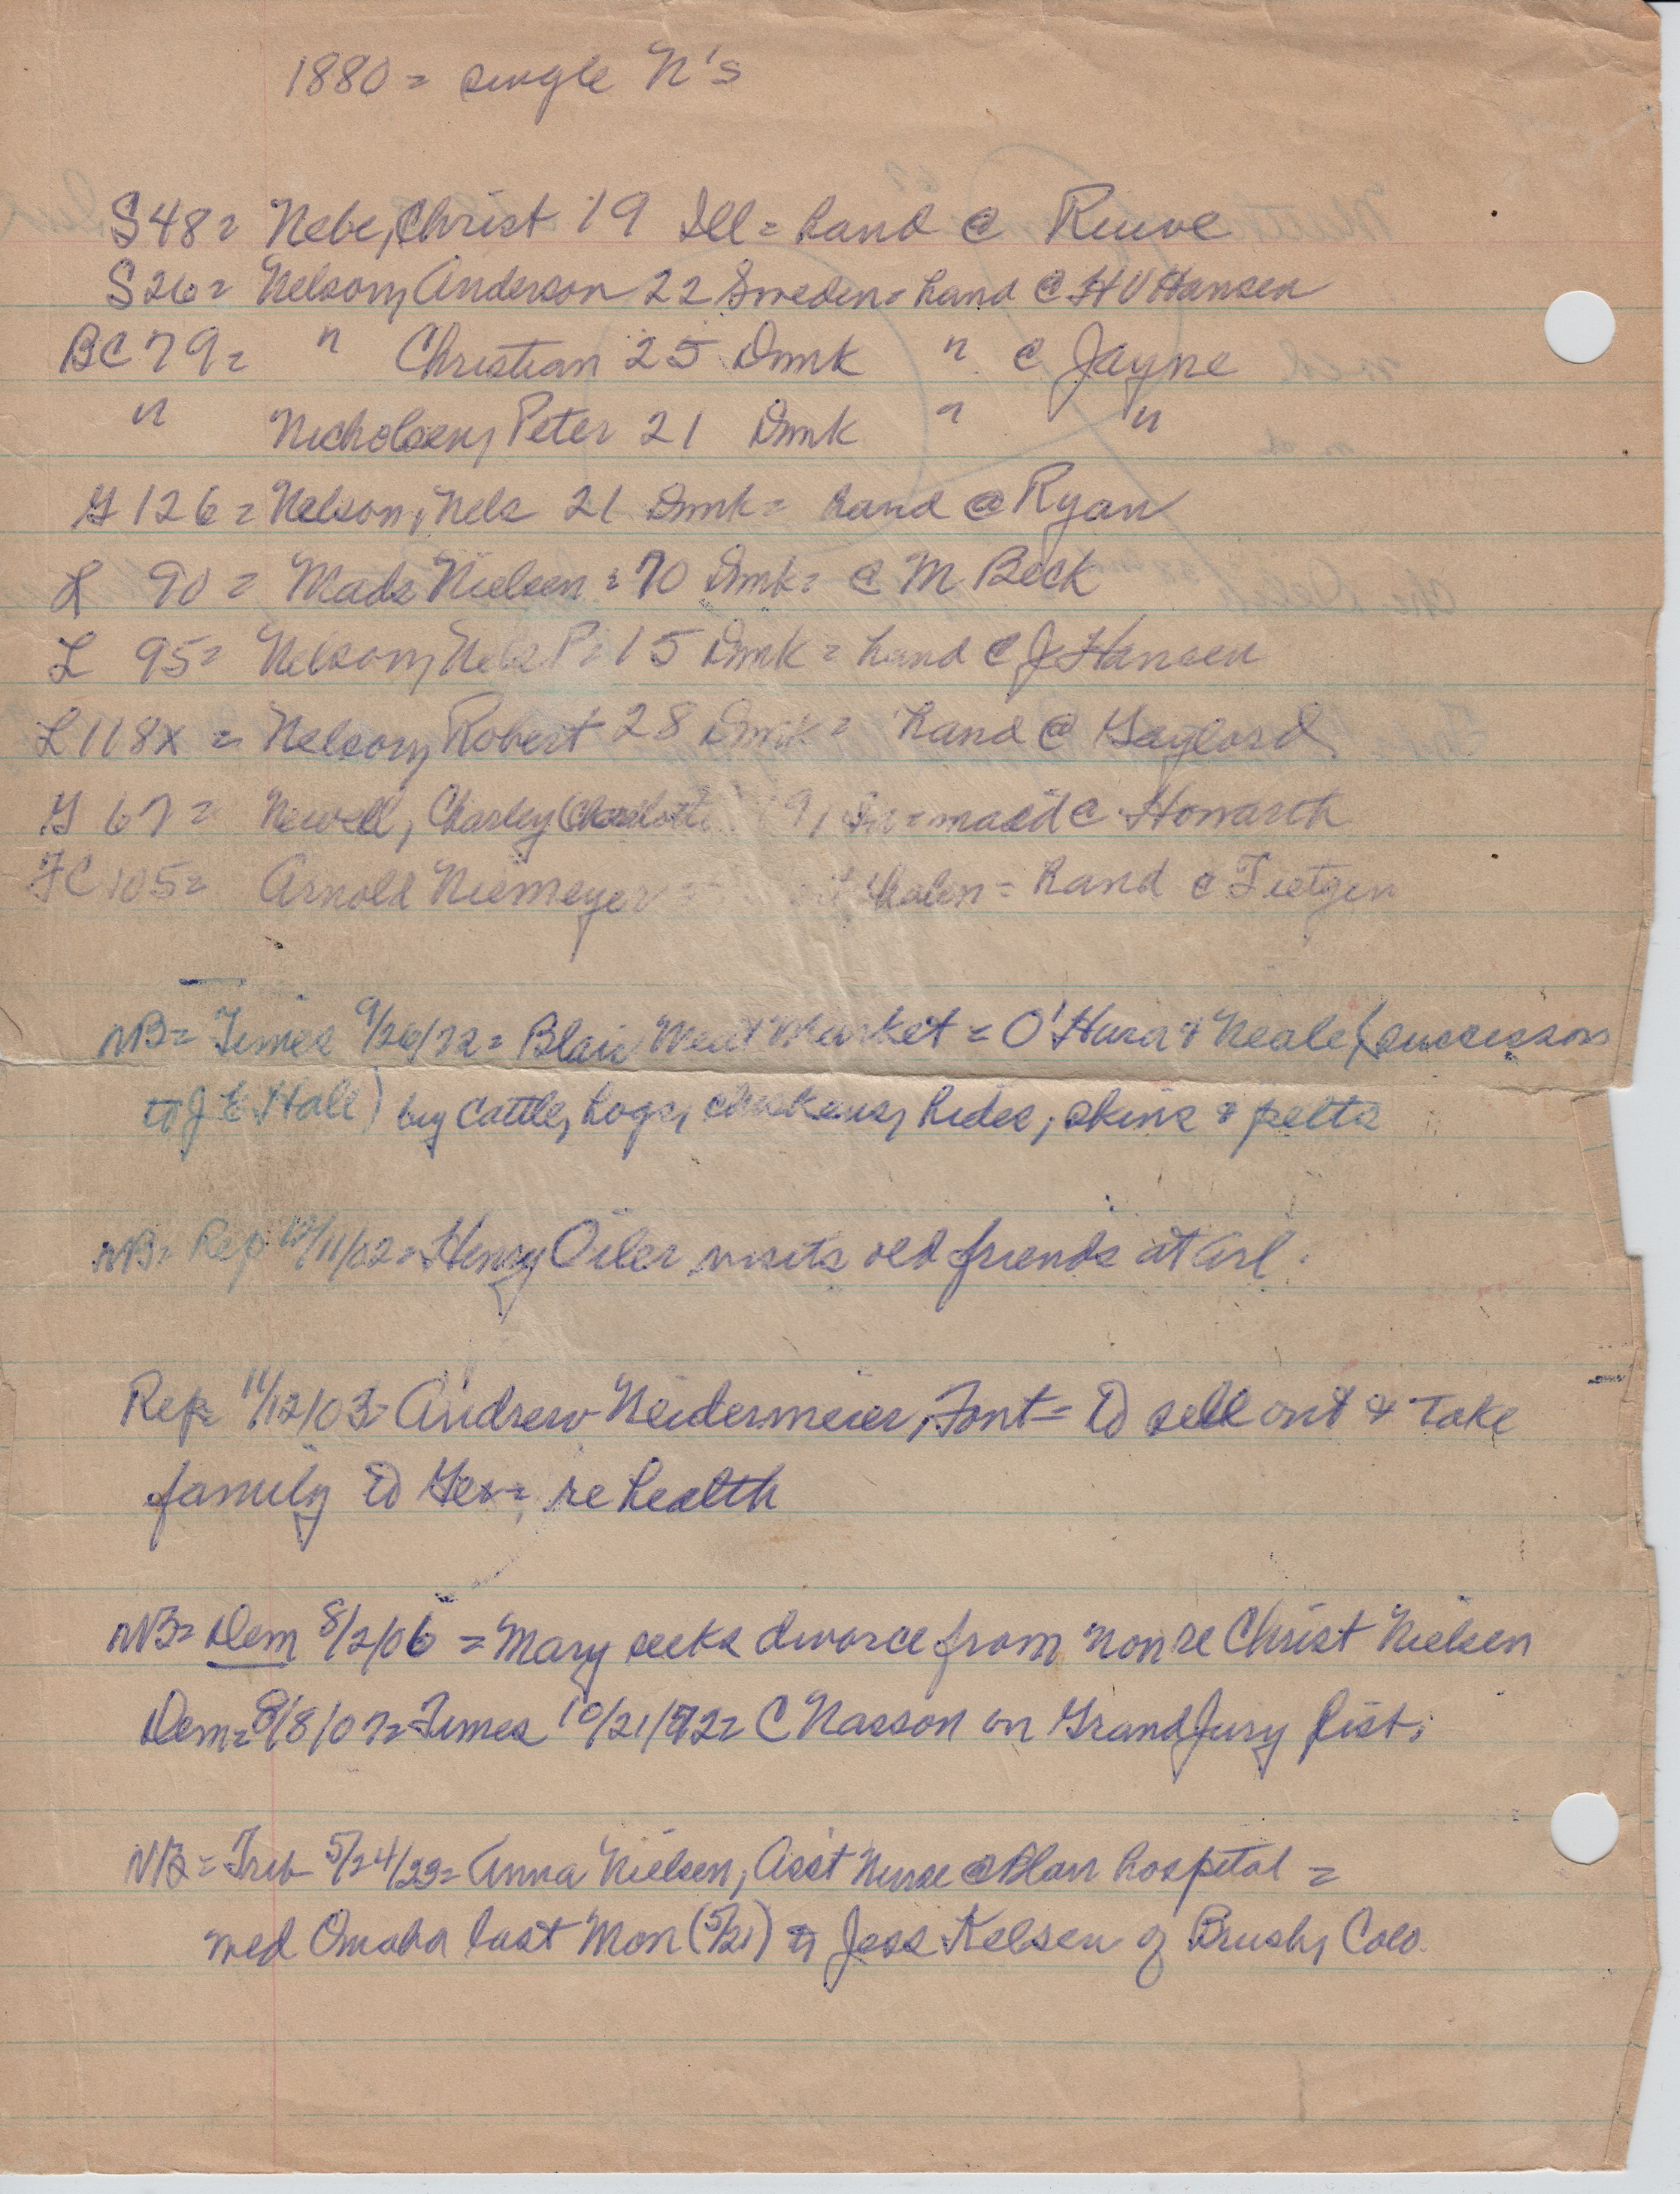 1880 = single N's
S48 = Nebe, Christ 19 Ill = hand @
S26 = Nelson, Anderson 22 Sweden = hand @ HV Hansen
BC 79 = " Christian 25 Dmk " @ Jayne
" Nicholsen, Peter 21 Dmk " "
G 126 = Nelson, Nels 21 Dmk = hand @ Ryan
L 90 = Mads Nielsen = 70 Dmk = @ M Beck
L 95 = Nelson, Nels P = 15 Dmk = hand @ J Hansen
L 118x = Nelson, Robert 28 Dmk = hand @ Gaylord
G 67 = Newell, Charley 19, = maid @ Howarth
FC 105 = Arnold Niemeyer = hand @ Tietgen
NB = Times 9/26/72 = Blair Meat Market = O'Hara & Neale (successors
to J E Hall) buy cattle, hogs, chickens, hides, skins & pelts
NB = Rep 12/11/02 = Henry Oiler visits old friends at Arl.
Rep = 11/12/03 = Andrew Neidermeier, Font = to sell out & take
family to = re health
NB = Dem 8/2/06 = Mary seeks divorce from non re Christ Nielsen
Dem = 8/8/07 = Times 10/21/72 = C Nasson on Grand Jury list.
NB = Trib 5/24/23 = Anna Nielsen, Ass't Nurse @ Blair hospital =
wed Omaha last Mon (5/21) to Jess Kelsen of Brush, Colo.